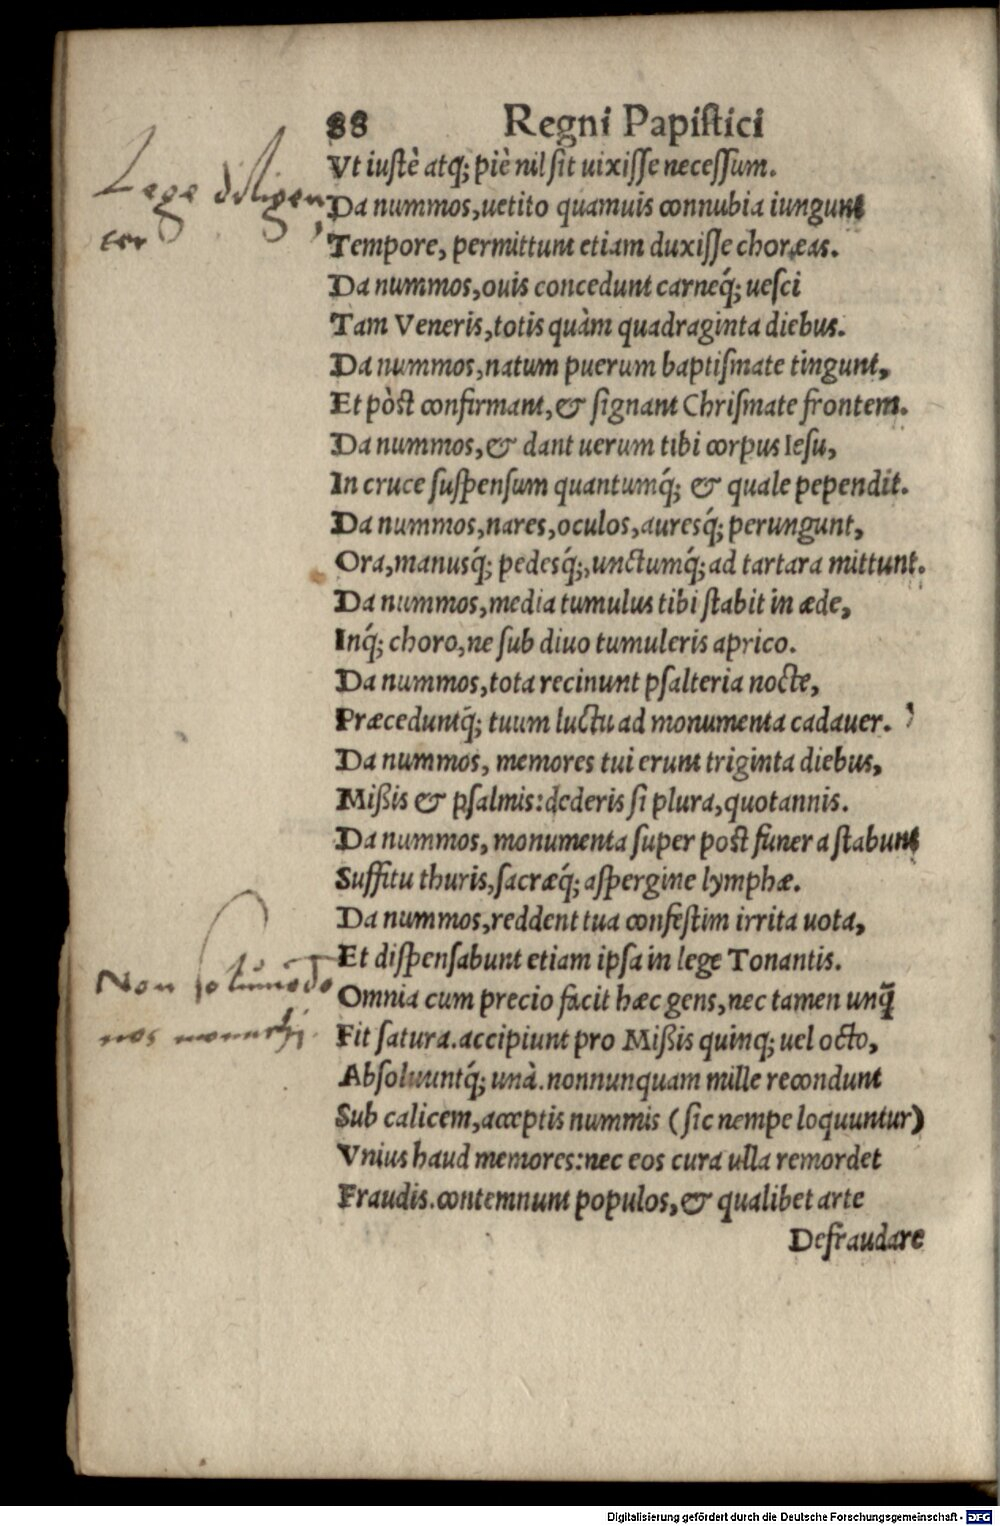 88 Regni Papiſtici
Vt iuſtè atq; piè nil ſit uixiſſe neceſſum.
Lege diligen
ter
Da nummos, uetito quamuis connubia iungunt
Tempore, permittunt etiam duxiſſe choræas.
Da nummos, ouis concedunt carneq́; ueſci
Tam Veneris, totis quàm quadraginta diebus.
Da nummos, natum puerum baptiſmate tingunt,
Et pòſt confirmant, & ſignant Chriſmate frontem.
Da nummos, & dant uerum tibi corpus Ieſu,
In cruce ſuſpenſum quantumq́; & quale pependit.
Da nummos, nares, oculos, auresq́; perungunt,
Ora, manusq́; pedesq́;, unctumq́; ad tartara mittunt.
Da nummos, media tumulus tibi ſtabit in æde,
Inq́; choro, ne ſub diuo tumuleris aprico.
Da nummos, tota recinunt pſalteria nocte,
Præceduntq́; tuum luctu ad monumenta cadauer.
Da nummos, memores tui erunt triginta diebus,
Mißis & pſalmis: dederis ſi plura, quotannis.
Da nummos, monumenta ſuper poſt funera ſtabunt
Suffitu thuris, ſacræq́; aſpergine lymphæ.
Da nummos, reddent tua confeſtim irrita uota,
Et diſpenſabunt etiam ipſa in lege Tonantis.
Non ſolumodo
nos
Omnia cum precio facit hæc gens, nec tamen unq̃
Fit ſatura. accipiunt pro Mißis quinq; uel octo,
Abſoluuntq́; unà. nonnunquam mille recondunt
Sub calicem, acceptis nummis (ſic nempe loquuntur)
Vnius haud memores: nec eos cura ulla remordet
Fraudis. contemnunt populos, & qualibet arte
Defraudare
Digitalisierung gefördert durch die Deutsche Forschungsgemeinschaft - DFG